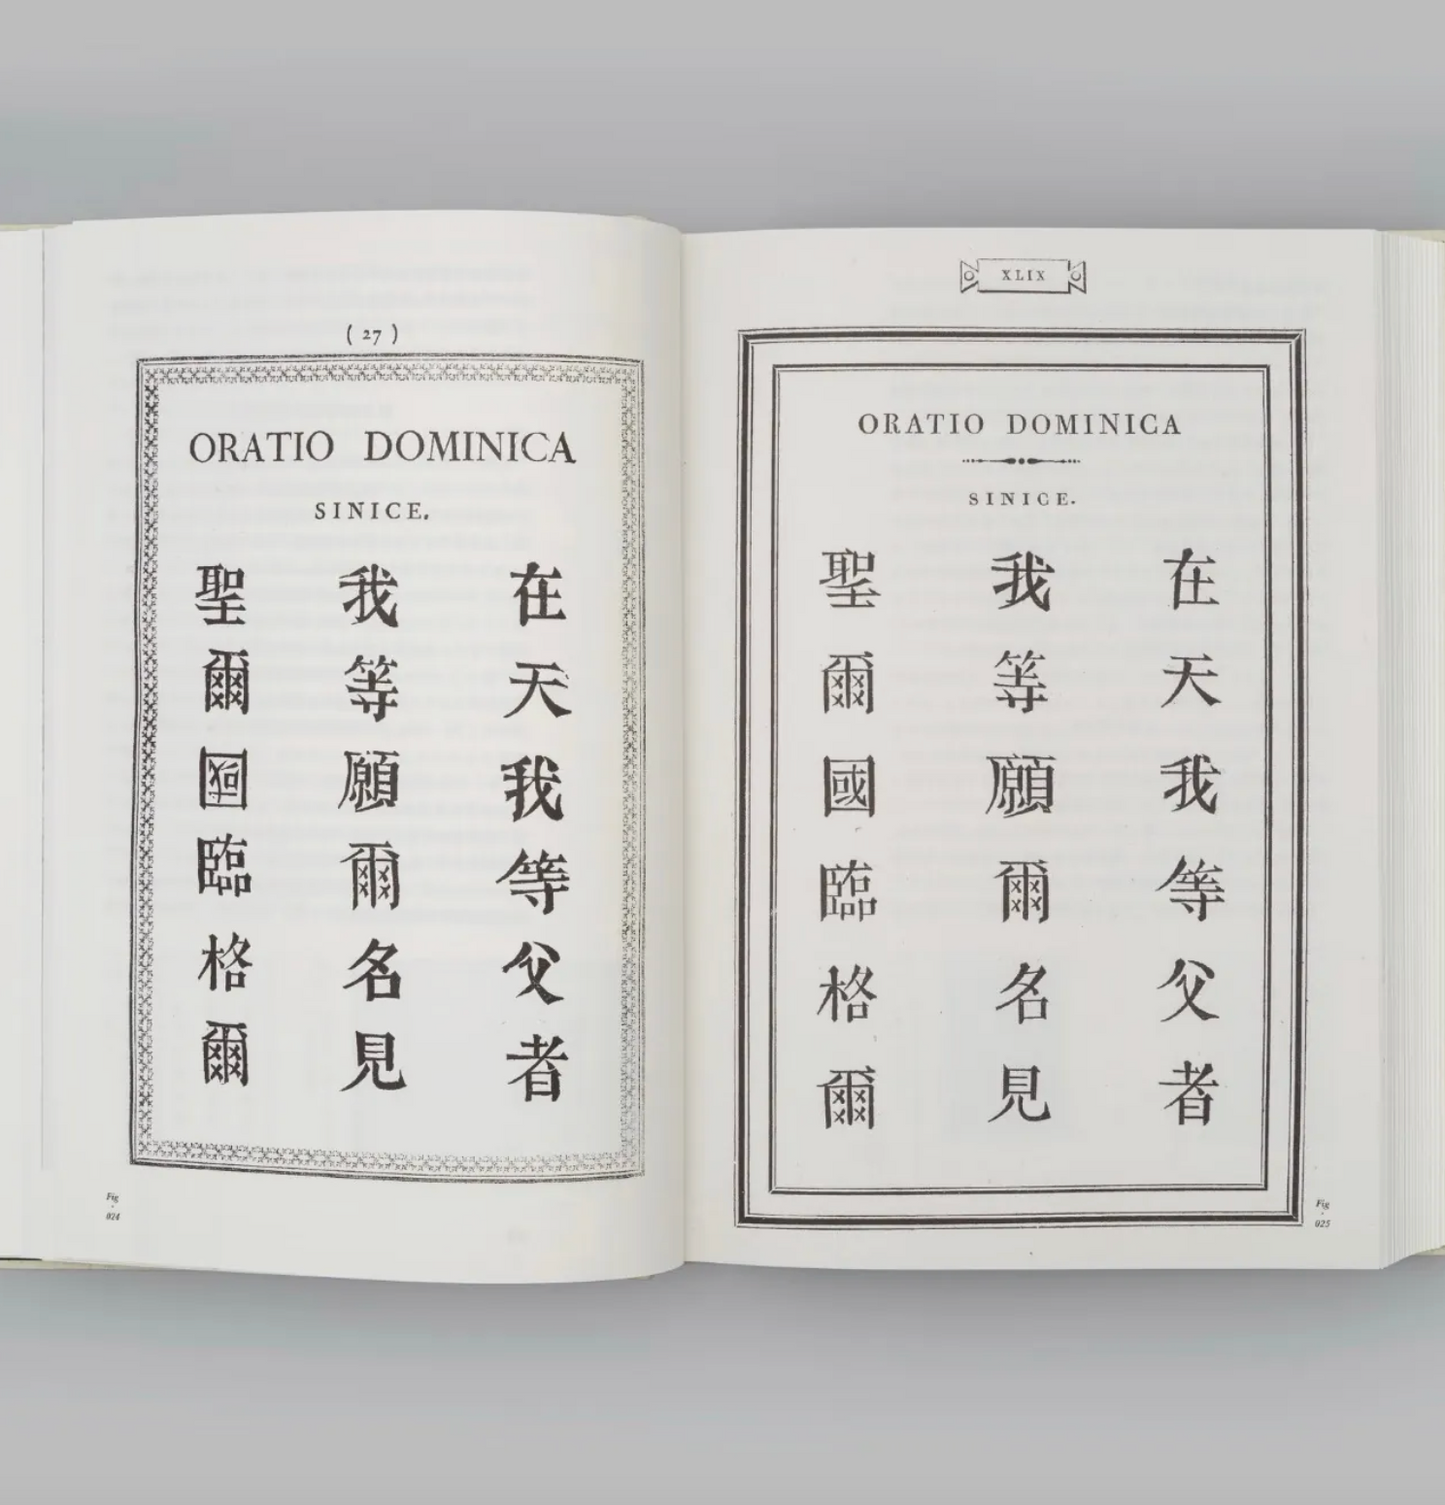 ( 27 )
ORATIO DOMINICA
SINICE.
在天我等父者
我等願爾名見
聖爾國臨格爾
Fig
.
024
XLIX
ORATIO DOMINICA
SINICE.
在天我等父者
我等願爾名見
聖爾國臨格爾
Fig
.
025